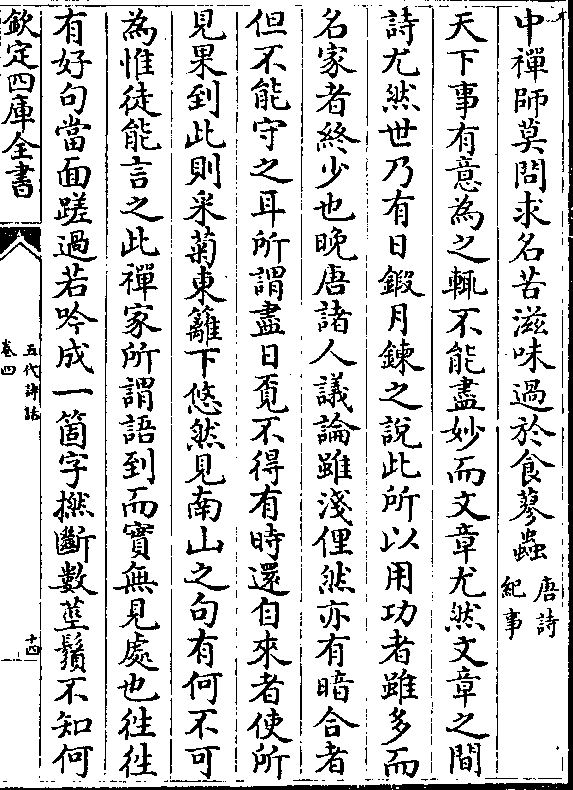 中禪師莫問求名苦滋味過於食蓼蟲唐詩紀事
天下事有意為之輒不能盡妙而文章尤然文章之間
詩尤然世乃有日鍛月鍊之說此所以用功者雖多而
名家者終少也晚唐諸人議論雖淺俚然亦有暗合者
但不能守之耳所謂盡日覔不得有時還自來者使所
見果到此則采菊東籬下悠然見南山之句有何不可
為惟徒能言之此禪家所謂語到而實無見處也往往
有好句當面蹉過若吟成一箇字撚斷數莖鬚不知何
欽定四庫全書
五代詩話
卷四
十四